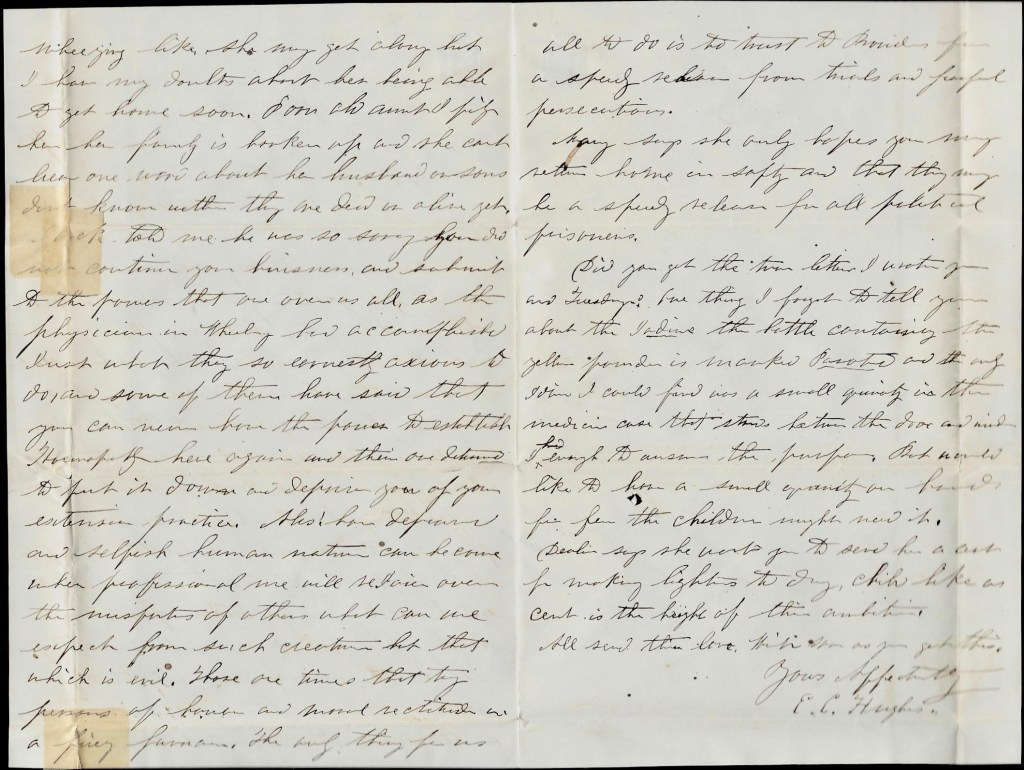 Wheezing like, she may get along but
I have my doubts about her being able
to get home soon. Poor old aunt I pity
her her family is broken up and she cant
hear one word about her husband or sons
don't know wether they are dead or alive yet.
told me he was so sorry you did
not continue your buisness, and submit
to the powers that are over us all, as the
physicians in Wheeling had accomplished
Just what they so earnestly axious to
do, and some of them have said that
you can never have the power to establish
Homeopathy here again and their one
to put it down and deprive you of your
extensive practice. Alas! how depraved
and selfish human nature can become
when proffessional me will rejoice over
the misfortunes of others what can we
expect from such creatures but that
which is evil. These are times that try
persons of honor and moral rectitude in
a firey furnace. The only thing for us
all to do is to trust to Providence for
a speedy release from trials and fearful
persecutions.
Mary says she only hopes you may
return home in safty and that they may
be a speedy release for all political
prisoners.
Did you get the two letters I wrote you
and Tuesday? One thing I forgot to tell you
about the Iodine the bottle containing the
yellow powder is marked and the only
Iodine I could find was a small quantity in the
medicine case that stands between the door and window
had
I enough to answer the purpose. But would
like to have a small quantity on hand
for fear the children might need it.
says she wants you to send her a cent
for making lighters to day, child like as
cent is the height of their ambition.
All send their love. Write soon as you get this.
Yours Affectionately
E. C. Hughes.